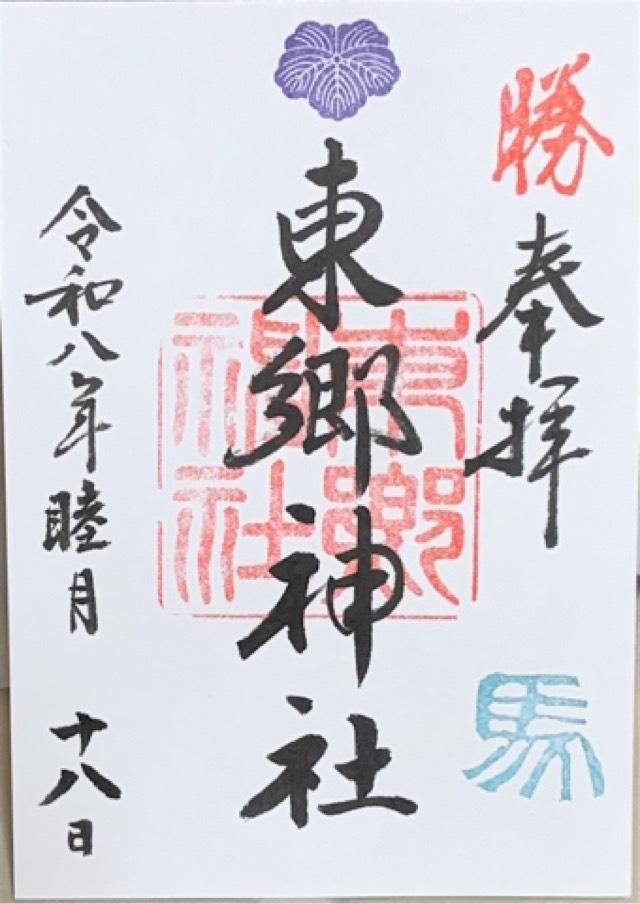 勝
奉拝
馬
東郷神社
東郷神社
令和八年睦月 十八日